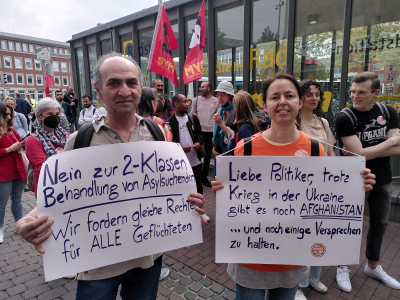 Nein zur 2-Klassen
Behandlung von Asylsuchenden
Wir fordern gleiche Rechte
für ALLE Geflüchteten
Liebe Politiker, trotz
Krieg in der Ukraine
gibt es noch AFGHANISTAN
... und noch einige Versprechen
zu halten.